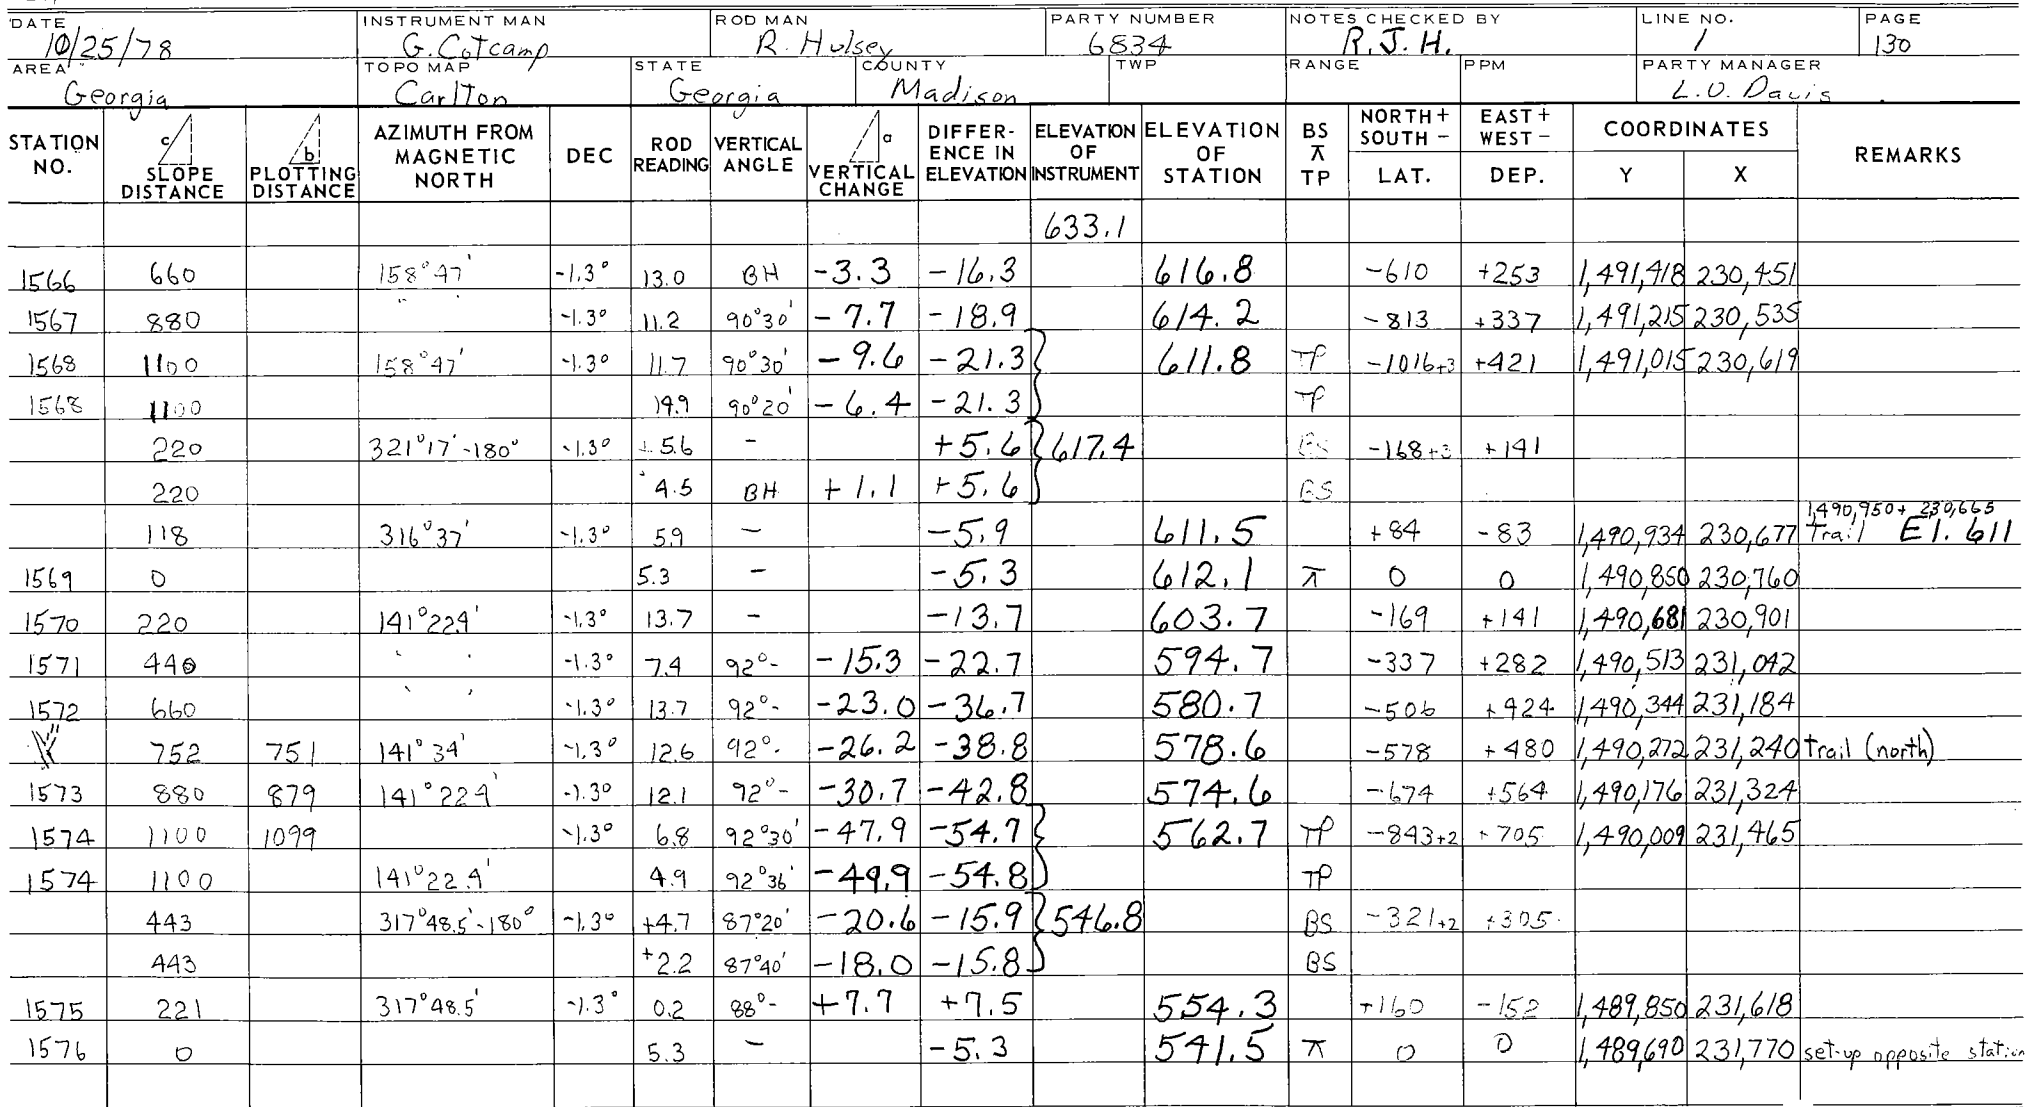 DATE INSTRUMENT MAN ROD MAN PARTY NUMBER NOTES CHECKED BY LINE NO. PAGE
10/25/78 G. Cotcamp R. Hulsey 6834 R.J.H. 1 130
AREA TOPO MAP STATE COUNTY TWP RANGE PPM PARTY MANAGER
Georgia Carlton Georgia Madison L.O. Davis
STATION NO. c SLOPE DISTANCE b PLOTTING DISTANCE AZIMUTH FROM MAGNETIC NORTH DEC ROD READING VERTICAL ANGLE a VERTICAL CHANGE DIFFER-ENCE IN ELEVATION ELEVATION OF INSTRUMENT ELEVATION OF STATION BS ⊼ TP NORTH + SOUTH - LAT. EAST + WEST - DEP. COORDINATES Y X REMARKS
633.1
1566 660 158°47' -1.3° 13.0 BH -3.3 -16.3 616.8 -610 +253 1,491,418 230,451
1567 880 " -1.3° 11.2 90°30' -7.7 -18.9 614.2 -813 +337 1,491,215 230,535
1568 1100 158°47' -1.3° 11.7 90°30' -9.6 -21.3 611.8 TP -1016+3 +421 1,491,015 230,619
1568 1100 14.9 90°20' -6.4 -21.3 TP
220 321°17'-180° -1.3° +5.6 - +5.6 617.4 BS -168+3 +141
220 4.5 BH +1.1 +5.6 BS
1,490,950+ 230,665
118 316°37' -1.3° 5.9 - -5.9 611.5 +84 -83 1,490,934 230,677 Trail El. 611
1569 0 5.3 - -5.3 612.1 ⊼ 0 0 1,490,850 230,760
1570 220 141°22.4' -1.3° 13.7 - -13.7 603.7 -169 +141 1,490,681 230,901
1571 440 " -1.3° 7.4 92°- -15.3 -22.7 594.7 -337 +282 1,490,513 231,042
1572 660 " -1.3° 13.7 92°- -23.0 -36.7 580.7 -506 +424 1,490,344 231,184
752 751 141°34' -1.3° 12.6 92°- -26.2 -38.8 578.6 -578 +480 1,490,272 231,240 trail (north)
1573 880 879 141°22.4' -1.3° 12.1 92°- -30.7 -42.8 574.6 -674 +564 1,490,176 231,324
1574 1100 1099 -1.3° 6.8 92°30' -47.9 -54.7 562.7 TP -843+2 +705 1,490,009 231,465
1574 1100 141°22.4' 4.9 92°36' -49.9 -54.8 TP
443 317°48.5'-180° -1.3° +4.7 87°20' -20.6 -15.9 546.8 BS -321+2 +305
443 +2.2 87°40' -18.0 -15.8 BS
1575 221 317°48.5' -1.3° 0.2 88°- +7.7 +7.5 554.3 +160 -152 1,489,850 231,618
1576 0 5.3 - -5.3 541.5 ⊼ 0 0 1,489,690 231,770 set-up opposite station